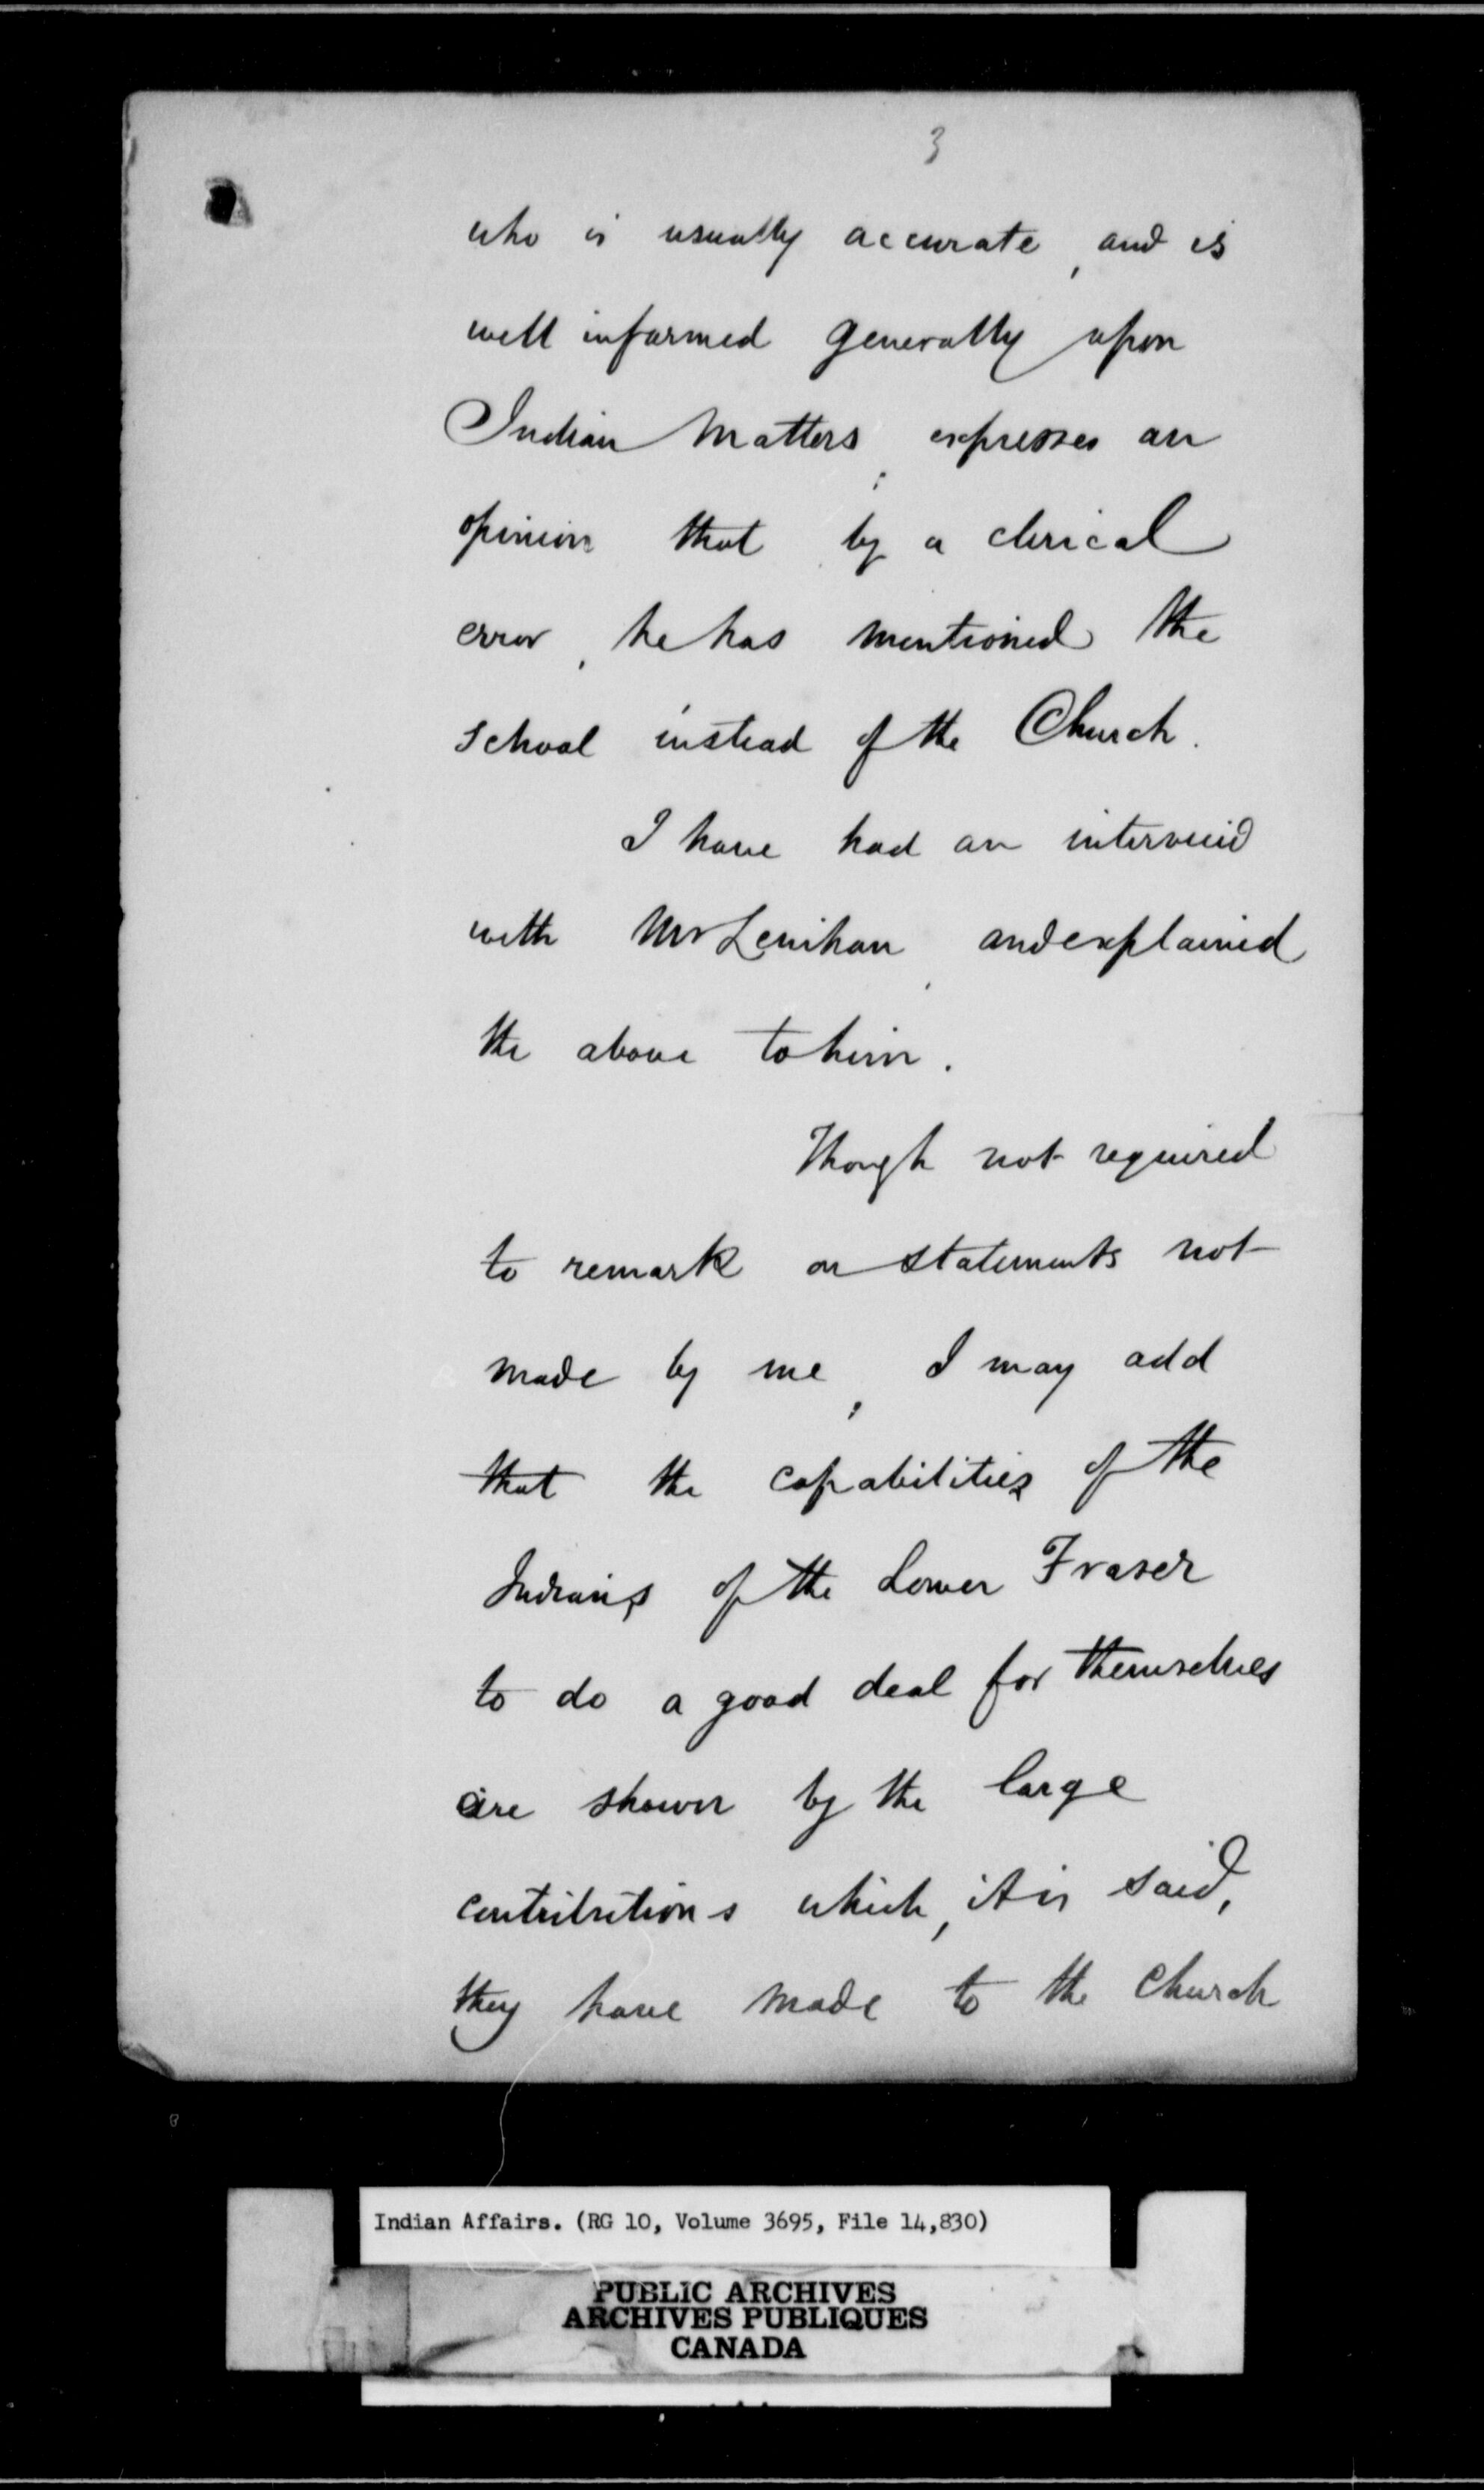 3
who is usually accurate, and is
well informed generally upon
Indian Matters, expresses an
opinion that by a clerical
error, he has mentioned the
school instead of the Church.
I have had an interview
with Mr Lenihan, and explained
the above to him.
Though not required
to remark on statements not
made by me, I may add
that the capabilities of the
Indians of the Lower Fraser
to do a good deal for themselves
are shown by the large
contributions which, it is said,
they have made to the Church
Indian Affairs. (RG 10, Volume 3695, File 14,830)
PUBLIC ARCHIVES
ARCHIVES PUBLIQUES
CANADA